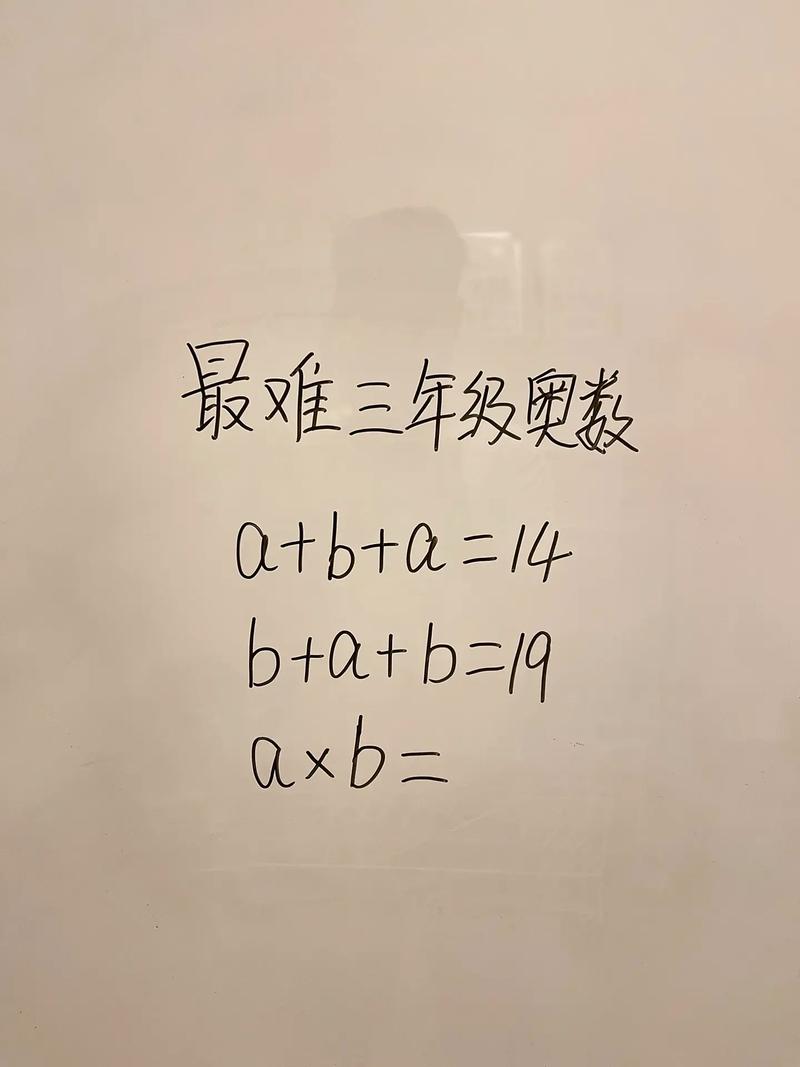 最难三年级奥数
a+b+a=14
b+a+b=19
a×b=